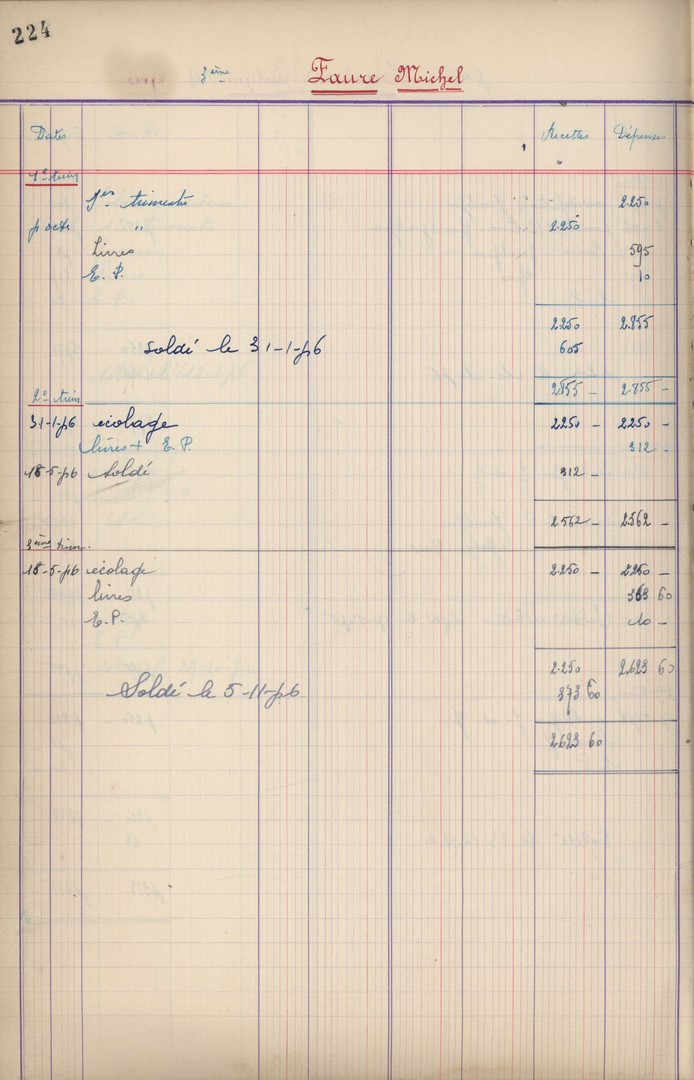 224
3ème Faure Michel
Dates Recettes Dépenses
1º trim
1er trimestre 2.250
5 octo " 2.250
Livres 595
E. P. 10
2.250 2.855
Soldé le 31-1-56 605
2855 - 2.855 -
2º trim
31-1-56 écolage 2250 - 2250 -
livres + E. P. 312 -
18-5-56 Soldé 312 -
2562 - 2562 -
3ème trim.
18-5-56 écolage 2.250 - 2250 -
livres 363 60
E.P. 10 -
2.250 2.623 60
Soldé le 5-11-56 373 60
2623 60